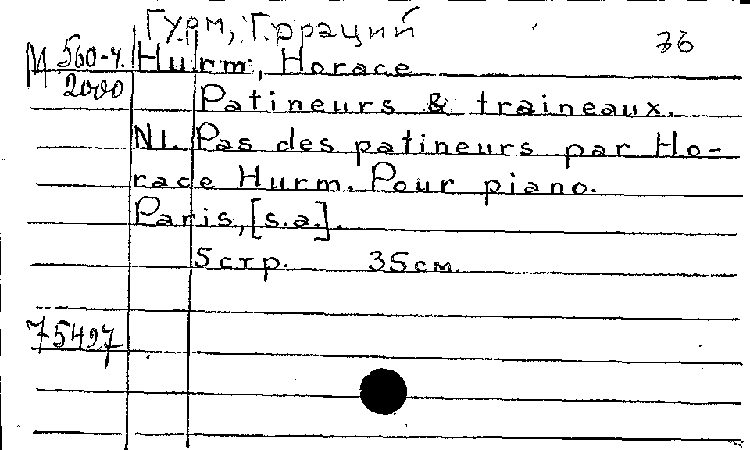 Гурм, Гораций
76
М 560-4.
2000
Hurm, Horace
Patineurs & traineaux.
N1. Pas des patineurs par Ho-
race Hurm. Pour piano.
Paris, [s.a.].
5 стр. 35 см.
75497